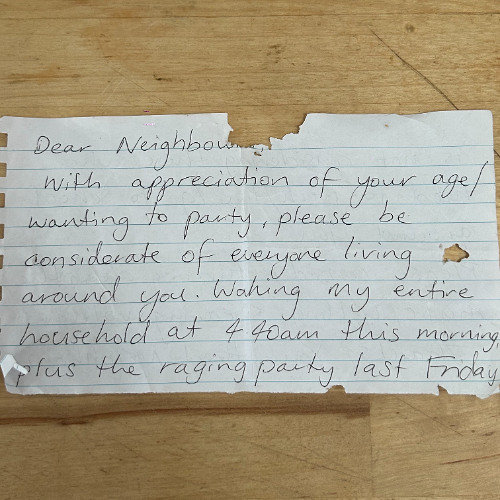 Dear Neighbour
With appreciation of your age/
wanting to party, please be
considerate of everyone living
around you. Waking my entire
household at 4.40am this morning,
plus the raging party last Friday